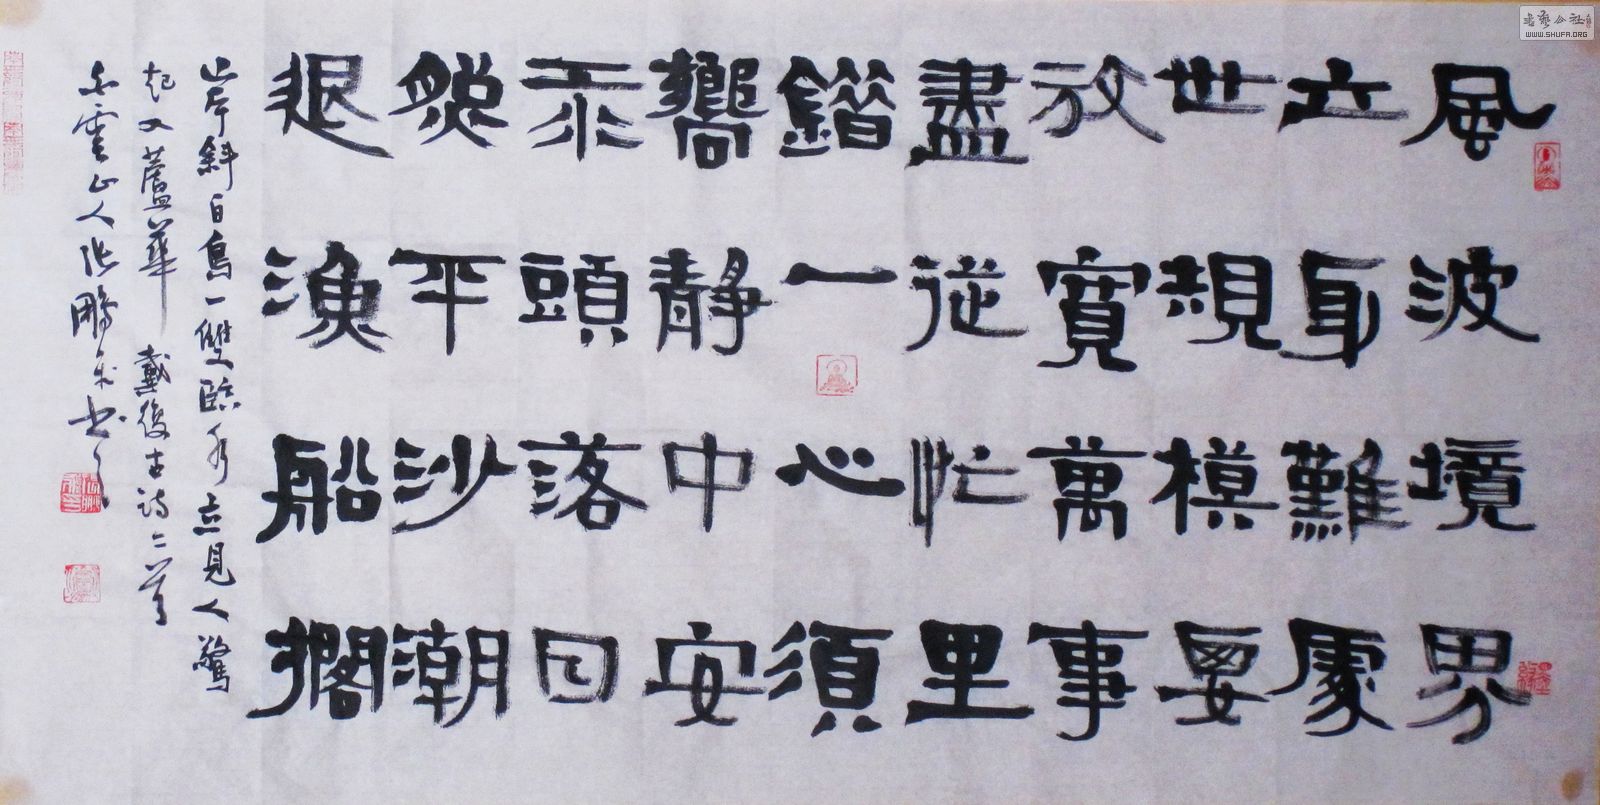 風波境界
立身難處
世規模要
放寬萬事
盡從忙里
錯一心須
嚮靜中安
江頭落日
照平沙潮
退漁船擱
岸斜白鳥一雙臨水立見人驚
起入蘆華 戴復古詩二首
雲山人張鵬書
書藝公社
WWW.SHUFA.ORG